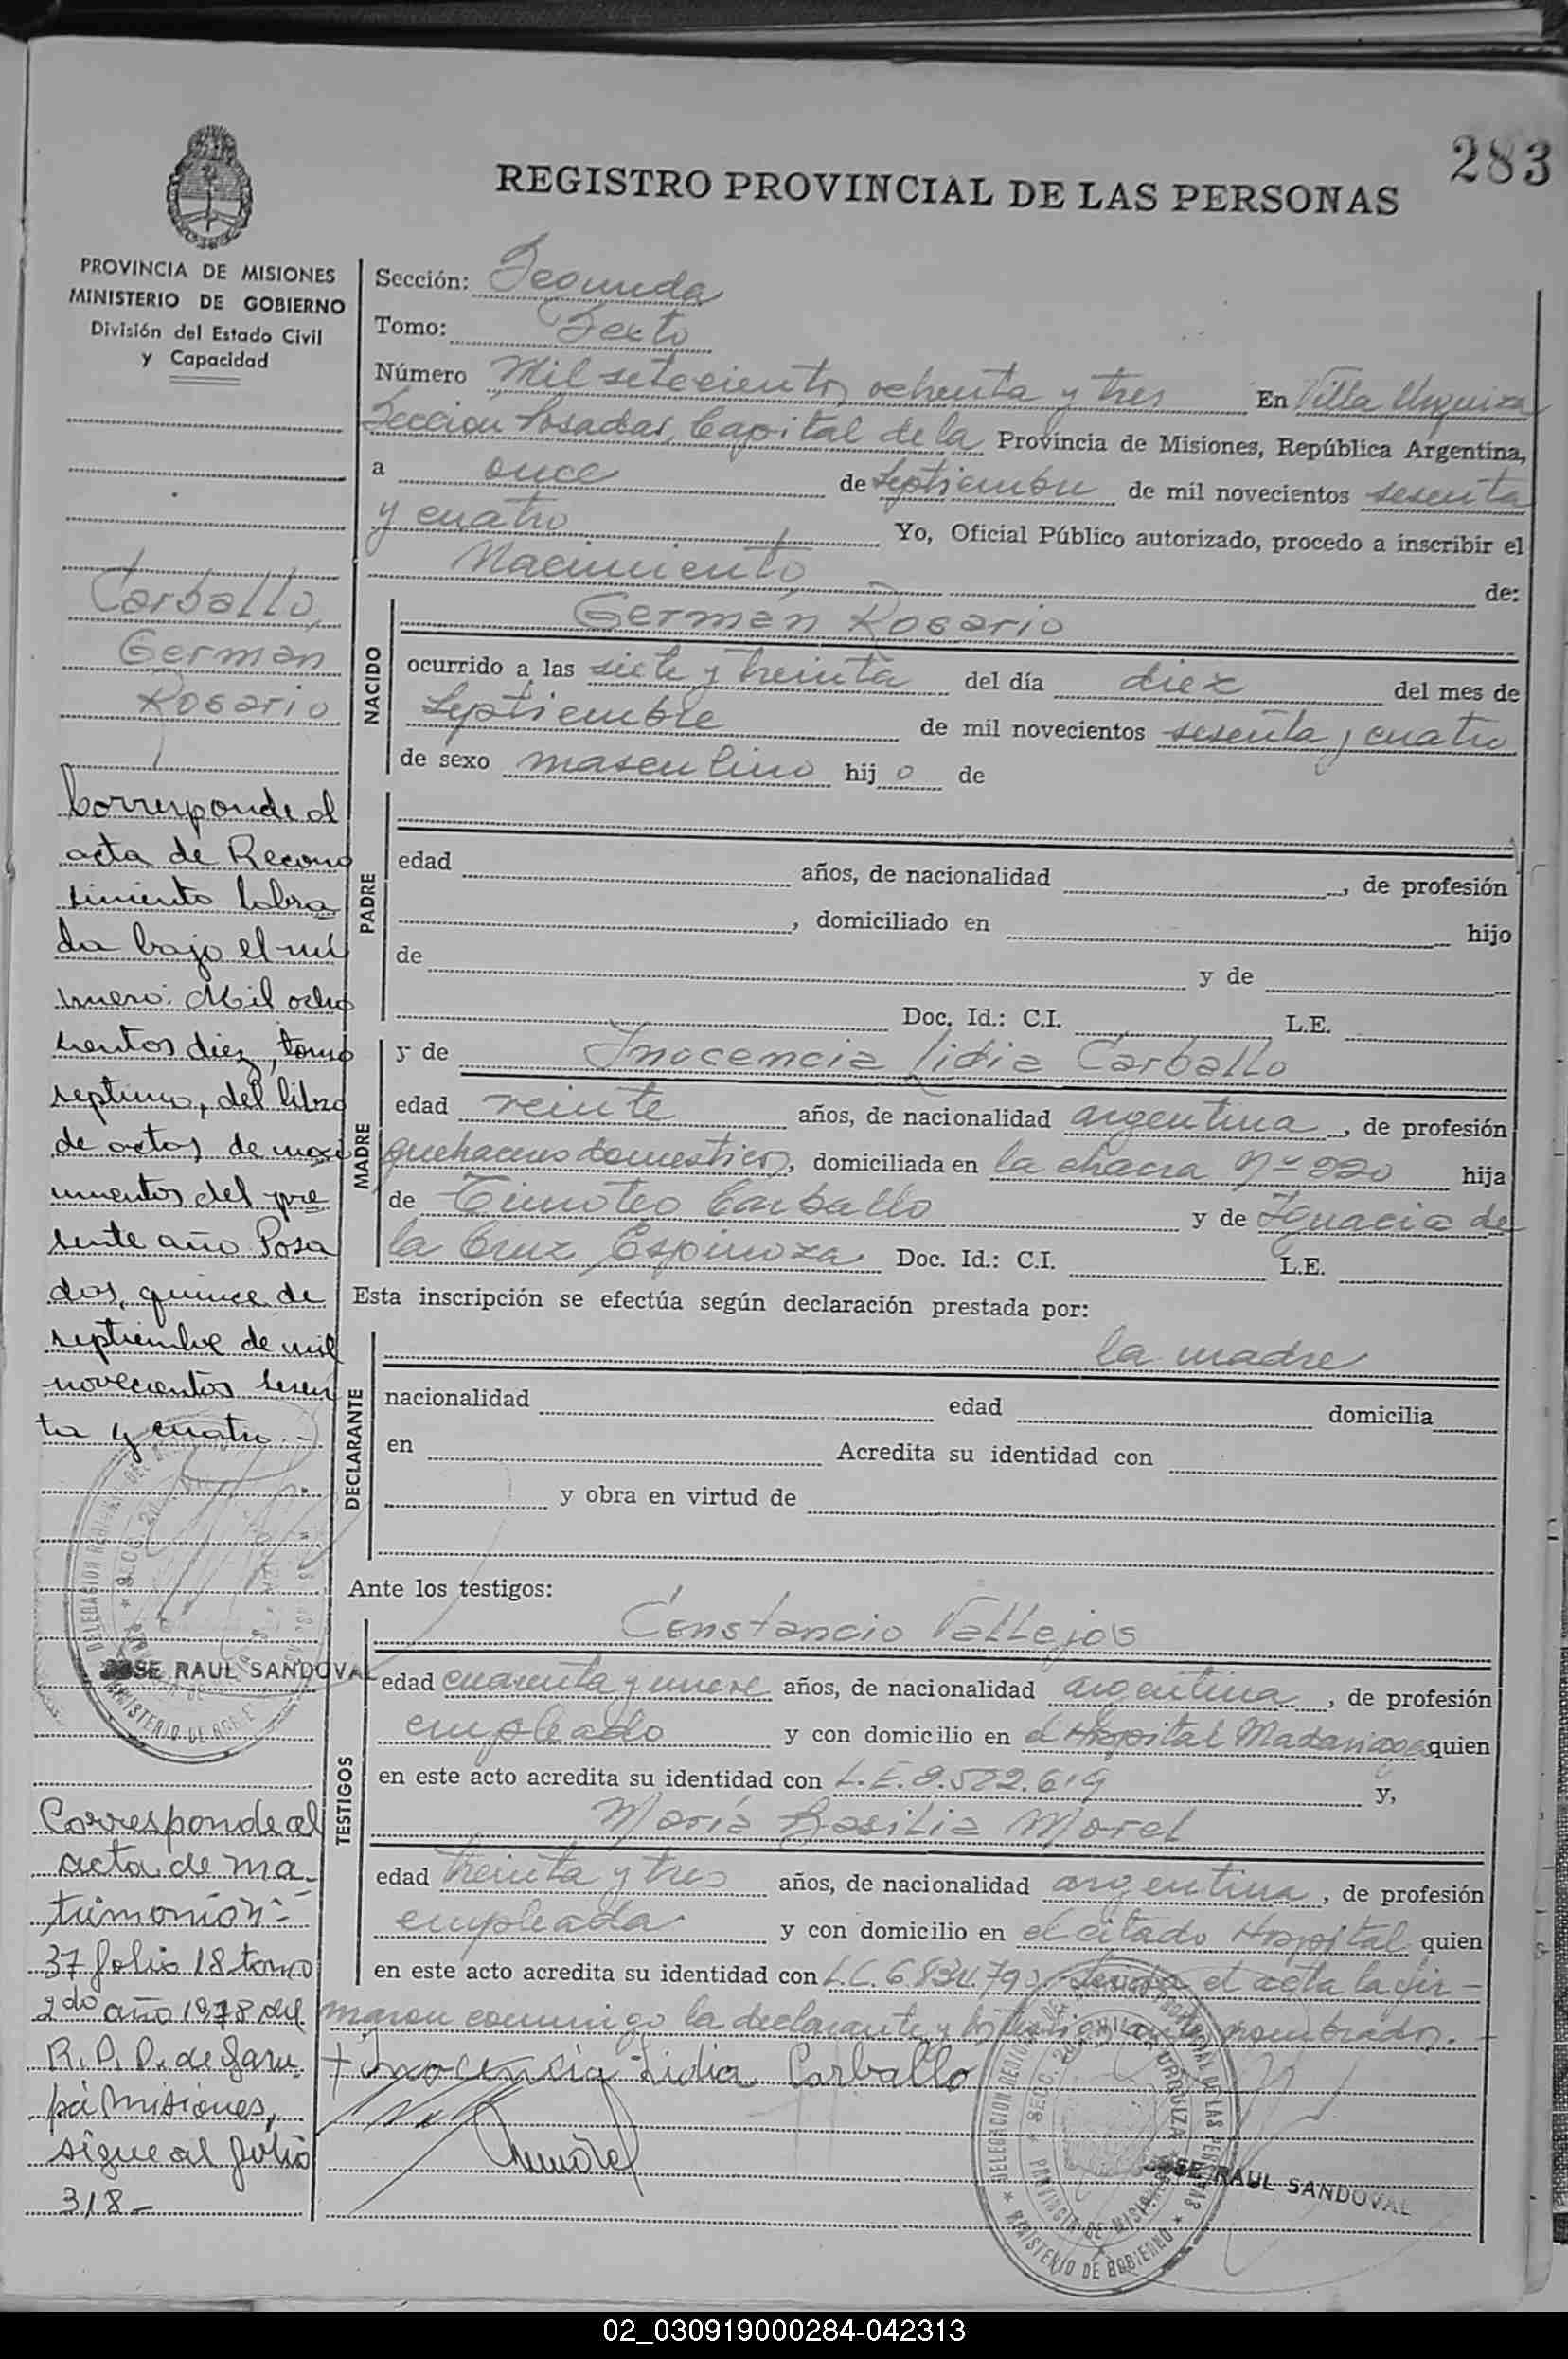 283
REGISTRO PROVINCIAL DE LAS PERSONAS
PROVINCIA DE MISIONES
MINISTERIO DE GOBIERNO
División del Estado Civil
y Capacidad
Carballo,
German
Rosario
Corresponde al
acta de Recono
simiento labra
da bajo el nú
mero: Mil ocho
cientos diez, tomo
septimo, del libro
de actas de naci
mientos del pre
sente año Posa
das, quince de
septiembre de mil
novecientos sesen
ta y cuatro.-
JOSE RAUL SANDOVAL
Corresponde al
acta de ma-
trimonio nº
37 folio 18 tomo
2do año 1978 del
R.P.P. de Garu-
pá Misiones,
sigue al folio
318-
Sección: Segunda
Tomo: Sexto
Número Mil setecientos ochenta y tres En Villa Urquiza
Seccion Posadas, Capital de la Provincia de Misiones, República Argentina,
a once de Septiembre de mil novecientos sesenta
y cuatro Yo, Oficial Público autorizado, procedo a inscribir el
Nacimiento de:
NACIDO
Germán Rosario
ocurrido a las siete y treinta del día diez del mes de
Septiembre de mil novecientos sesenta y cuatro
de sexo masculino hij o de
PADRE
edad años, de nacionalidad , de profesión
, domiciliado en hijo
de y de
Doc. Id.: C.I. L.E.
MADRE
y de Inocencia Lidia Carballo
edad veinte años, de nacionalidad argentina, de profesión
quehaceres domesticos, domiciliada en la chacra Nº 220 hija
de Timoteo Carballo y de Ignacia de
la Cruz Espinoza Doc. Id.: C.I. L.E.
Esta inscripción se efectúa según declaración prestada por:
DECLARANTE
la madre
nacionalidad edad domicilia
en Acredita su identidad con
y obra en virtud de
Ante los testigos:
TESTIGOS
Constancio Vallejos
edad cuarenta y nueve años, de nacionalidad argentina, de profesión
empleado y con domicilio en el Hospital Madariaga quien
en este acto acredita su identidad con L.E. y,
María Basilia Morel
edad treinta y tres años, de nacionalidad argentina, de profesión
empleada y con domicilio en el citado Hospital quien
en este acto acredita su identidad con L.C. Leida el acta la fir-
maron conmigo la declarante y testigos nombrados.-
+ Inocencia Lidia Carballo
JOSE RAUL SANDOVAL
DELEGACION
SECC. 2da VILLA URQUIZA
PROVINCIA DE MISIONES
MINISTERIO DE GOBIERNO
02_030919000284-042313